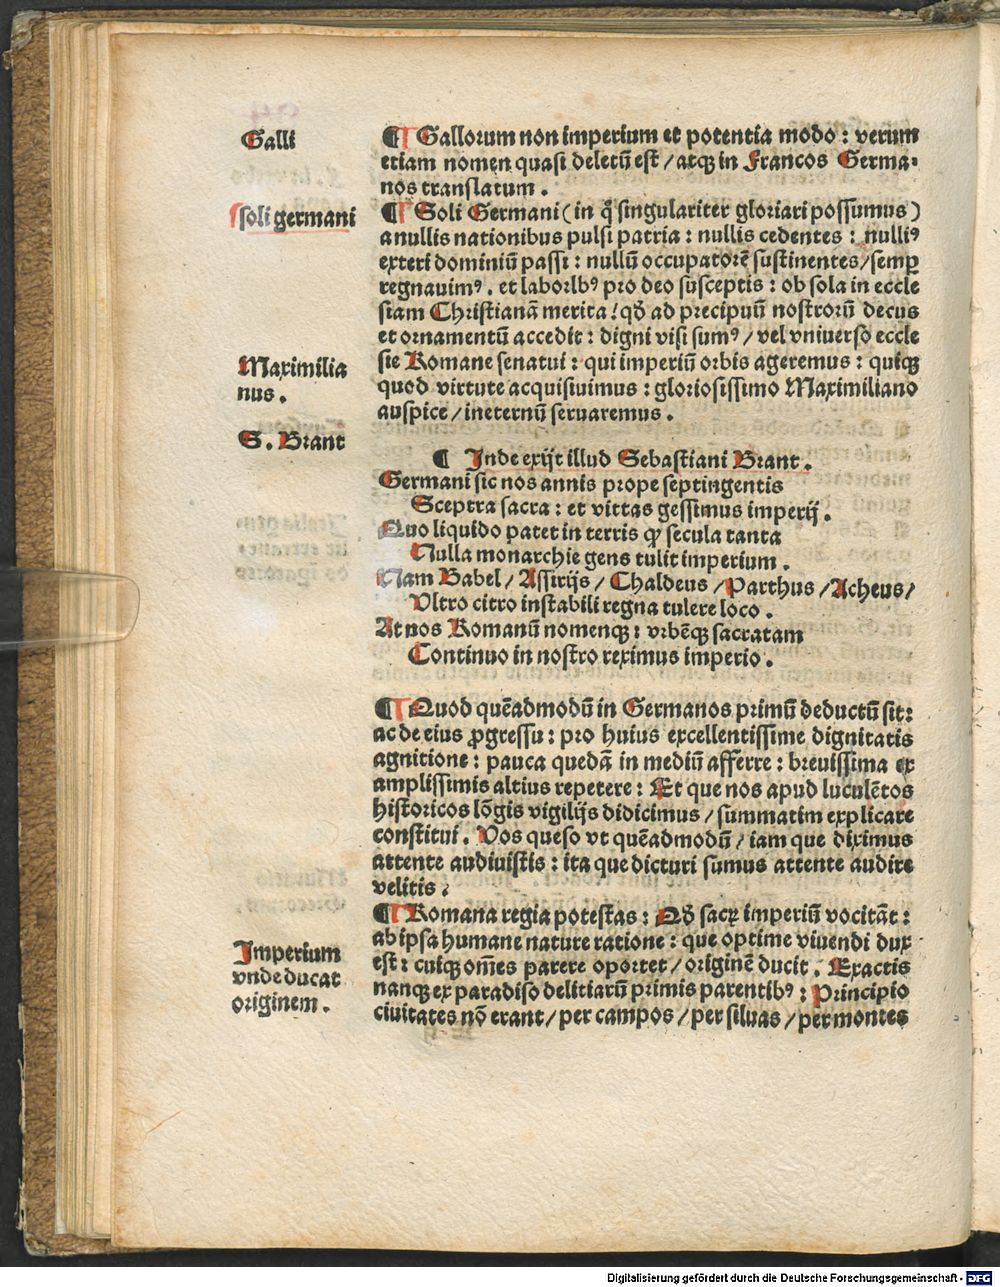 Galli
¶ Gallorum non imperium et potentia modo : verum
etiam nomen quasi deletū est / atqꝫ in Francos Germa⸗
nos translatum .
soli germani
¶ Soli Germani ( in q̃ singulariter gloriari possumus )
a nullis nationibus pulsi patria : nullis cedentes : nulliꝰ
exteri dominiū passi : nullū occupatorē sustinentes / semꝑ
regnauimꝰ . et laboribꝰ pro deo susceptis : ob sola in eccle
siam Christianā merita / qđ ad precipuū nostrorū decus
et ornamentū accedit : digni visi sumꝰ / vel vniuerso eccle
Maximilia
nus .
sie Romane senatui : qui imperiū orbis ageremus : quiqꝫ
quod virtute acquisiuimus : gloriosissimo Maximiliano
auspice / ineternū seruaremus .
S. Brant
¶ Inde exijt illud Sebastiani Brant .
Germani sic nos annis prope septingentis
Sceptra sacra : et vittas gessimus imperij .
Quo liquido patet in terris ꝙ secula tanta
Nulla monarchie gens tulit imperium .
Nam Babel / Assirijs / Chaldeus / Parthus / Acheus /
Vltro citro instabili regna tulere loco .
At nos Romanū nomenqꝫ : vrbēqꝫ sacratam
Continuo in nostro reximus imperio .
¶ Quod quēadmodū in Germanos primū deductū sit :
ac de eius ꝓgressu : pro huius excellentissime dignitatis
agnitione : pauca quedā in mediū afferre : breuissima ex
amplissimis altius repetere : Et que nos apud luculētos
historicos lōgis vigilijs didicimus / summatim explicare
constitui . Vos queso vt quēadmodū / iam que diximus
attente audiuistis : ita que dicturi sumus attente audire
velitis .
¶ Romana regia potestas : Qđ sacꝝ imperiū vocitāt :
ab ipsa humane nature ratione : que optime viuendi dux
Imperium
vnde ducat
originem .
est : cuiqꝫ om̄es parere oportet / originē ducit . Exactis
nanqꝫ ex paradiso delitiarū primis parentibꝰ : Principio
ciuitates nō erant / per campos / per siluas / per montes
Digitalisierung gefördert durch die Deutsche Forschungsgemeinschaft - DFG